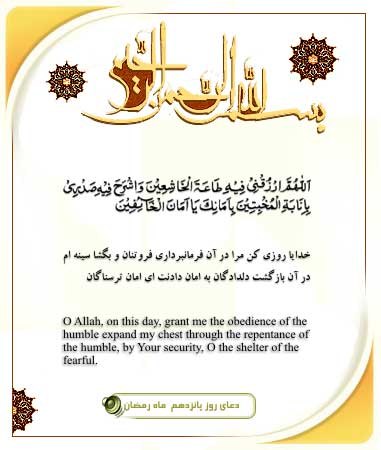 بسم الله الرحمن الرحیم
اَللّهُمَّ ارْزُقْنی فیهِ طاعَةَ الْخاشِعینَ وَاشْرَحْ فیهِ صَدْری
بِاِنابَةِ الْمُخْبِتینَ بِاَمانِکَ یا اَمانَ الْخاَّئِفینَ
خدایا روزی کن مرا در آن فرمانبرداری فروتنان و بگشا سینه ام
در آن بازگشت دلدادگان به امان دادنت ای امان ترسناگان
O Allah, on this day, grant me the obedience of the
humble expand my chest through the repentance of
the humble, by Your security, O the shelter of the
fearful.
دعای روز پانزدهم ماه رمضان